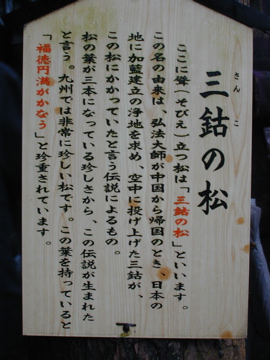 さんこ
三鈷の松
ここに聳(そびえ)立つ松は「三鈷の松」といいます。
この名の由来は、弘法大師が中国から帰国のとき、日本の
地に加藍建立の浄地を求め、空中に投げ上げた三鈷が、
この松にかかっていたと言う伝説によるもの。
松の葉が三本になっている珍しさから、この伝説が生まれた
と言う。九州では非常に珍しい松です。この葉を持っていると
「福徳円満がかなう」と珍重されています。